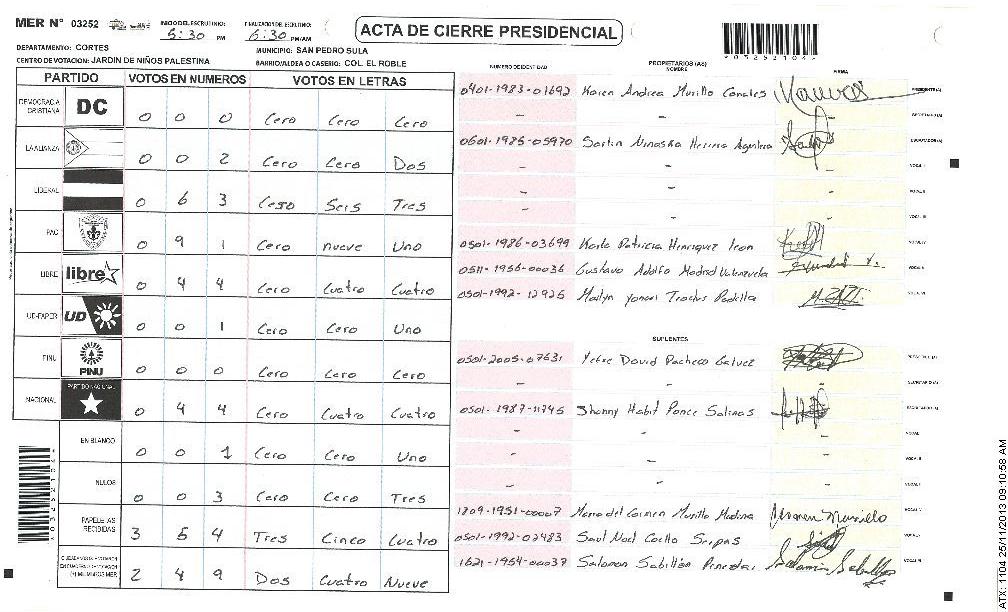 MER N° 03252
INICIO DEL ESCRUTINIO: 5:30 PM
FINALIZACION DEL ESCRUTINIO: 6:30 PM/AM
ACTA DE CIERRE PRESIDENCIAL
03252104
DEPARTAMENTO: CORTES
MUNICIPIO: SAN PEDRO SULA
CENTRO DE VOTACION: JARDIN DE NIÑOS PALESTINA
BARRIO/ALDEA O CASERIO: COL. EL ROBLE
PARTIDO VOTOS EN NUMEROS VOTOS EN LETRAS
DEMOCRACIA CRISTIANA DC 0 0 0 Cero Cero Cero
LA ALIANZA 0 0 2 Cero Cero Dos
LIBERAL 0 6 3 Cero Seis Tres
PAC 0 9 1 Cero nueve Uno
LIBRE libre 0 4 4 Cero Cuatro Cuatro
UD-FAPER UD 0 0 1 Cero Cero Uno
PINU PINU 0 0 0 Cero Cero Cero
NACIONAL PARTIDO NACIONAL 0 4 4 Cero Cuatro Cuatro
EN BLANCO 0 0 1 Cero Cero Uno
NULOS 0 0 3 Cero Cero Tres
PAPELETAS RECIBIDAS 3 5 4 Tres Cinco Cuatro
2 4 9 Dos Cuatro Nueve
NUMERO DE IDENTIDAD
PROPIETARIOS (AS)
NOMBRE
FIRMA
0401-1983-01692 Karen Andrea Murillo Canales PRESIDENTE(A)
- - SECRETARIO(A)
0501-1985-05970 Herrera Aguilera ESCRUTADOR(A)
- - - VOCAL I
- - - VOCAL II
- - - VOCAL III
0501-1986-03699 Karla Patricia Henriquez VOCAL IV
0511-1956-00036 Gustavo Adolfo Madrid Valenzuela VOCAL V
0501-1992-12925 Padilla VOCAL VI
SUPLENTES
0501-2005-07631 David Pacheco Galvez
- - - SECRETARIO(A)
0501-1987-11745 Jhonny Habit Ponce Salinas ESCRUTADOR(A)
- - - VOCAL I
- - - VOCAL II
- - - VOCAL III
1809-1951-00007 Maria del Carmen Murillo Medina Carmen Murillo
0501-1992-02483 Saul Noel Coello
1621-1954-00037 Salomon Sabillón Pineda
03252104
ATX: 1104 25/11/2013 09:10:58 AM